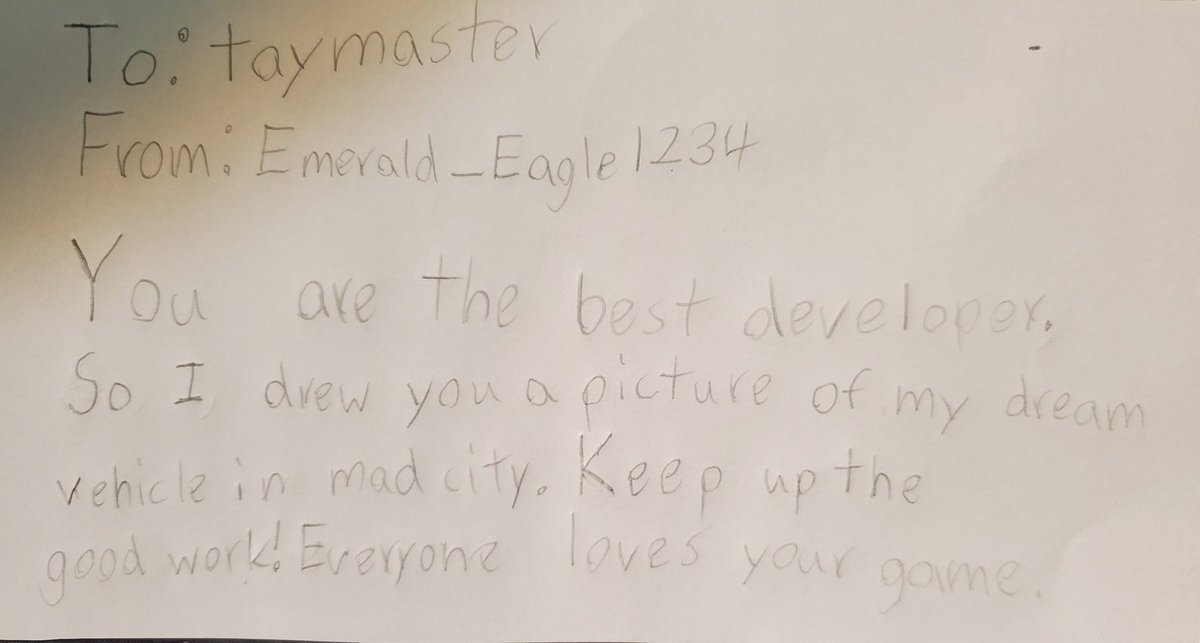 To: taymaster
From: Emerald_Eagle1234
You are the best developer.
So I drew you a picture of my dream
vehicle in mad city. Keep up the
good work! Everyone loves your game.